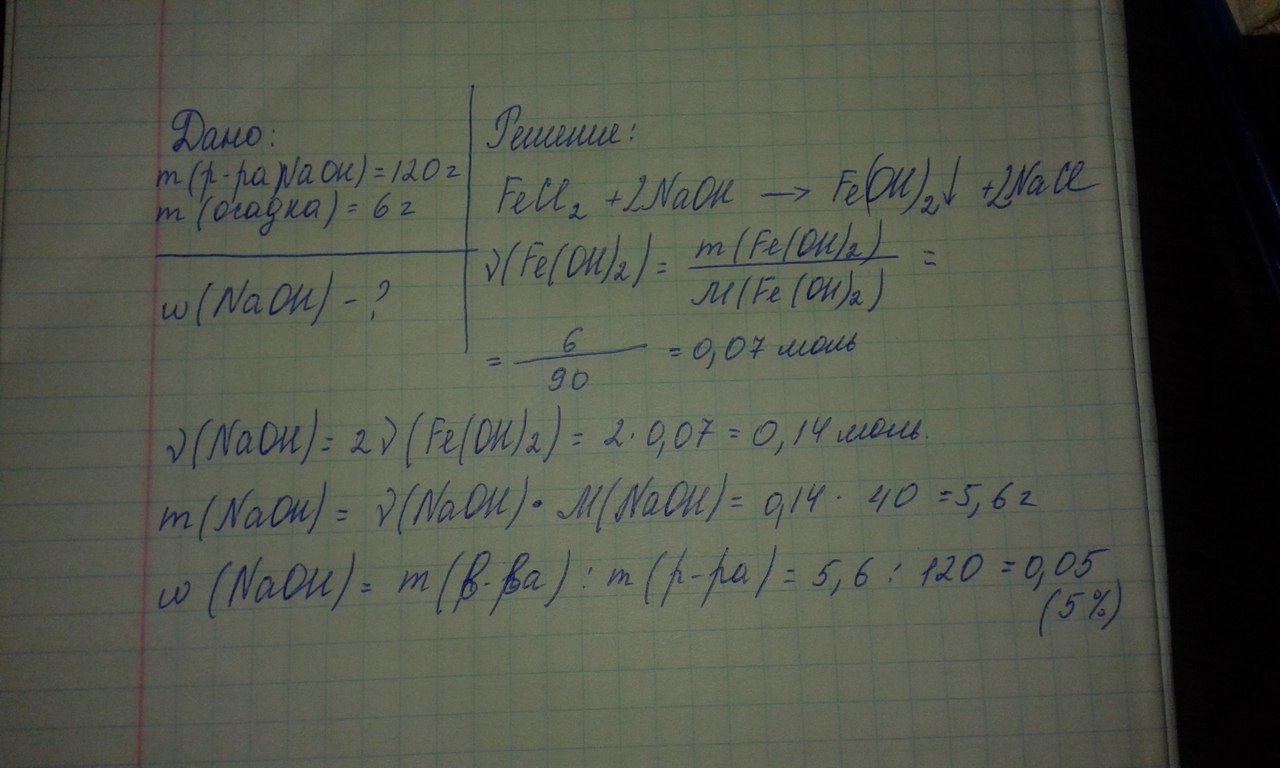 Дано:
m(р-ра NaOH) = 120 г
m(осадка) = 6 г
w(NaOH) - ?
Решение:
FeCl₂ + 2NaOH → Fe(OH)₂↓ + 2NaCl
ν(Fe(OH)₂) = m(Fe(OH)₂) / M(Fe(OH)₂) =
= 6 / 90 = 0,07 моль
ν(NaOH) = 2ν(Fe(OH)₂) = 2·0,07 = 0,14 моль.
m(NaOH) = ν(NaOH)·M(NaOH) = 0,14·40 = 5,6 г
w(NaOH) = m(в-ва) : m(р-ра) = 5,6 : 120 = 0,05
(5%)